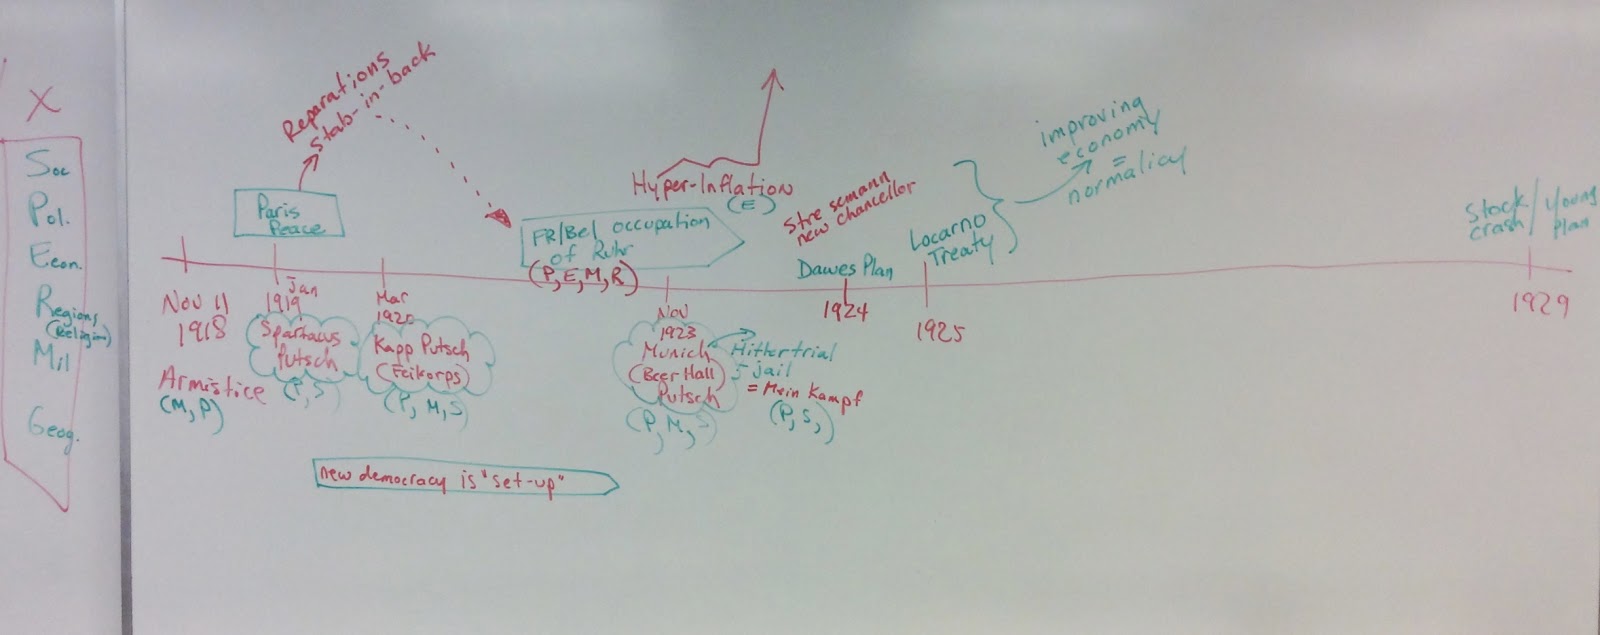 X
Soc
Pol.
Econ.
Regions
(Religion)
Mil
Geog.
Reparations
Stab-in-back
Paris
Peace
Nov 11
1918
Armistice
(M, P)
Jan
1919
Spartacus
Putsch
(P, S)
Mar
1920
Kapp Putsch
(Feikorps)
(P, M, S)
new democracy is "set-up"
FR/Bel occupation
of Ruhr
(P, E, M, R)
Hyper-Inflation
(E)
Nov
1923
Munich
(Beer Hall)
Putsch
(P, M, S)
Hitler trial
jail
= Mein Kampf
(P, S,)
Stresemann
new chancellor
Dawes Plan
1924
Locarno
Treaty
1925
improving
economy
=
normalicy
Stock / Young
crash / Plan
1929